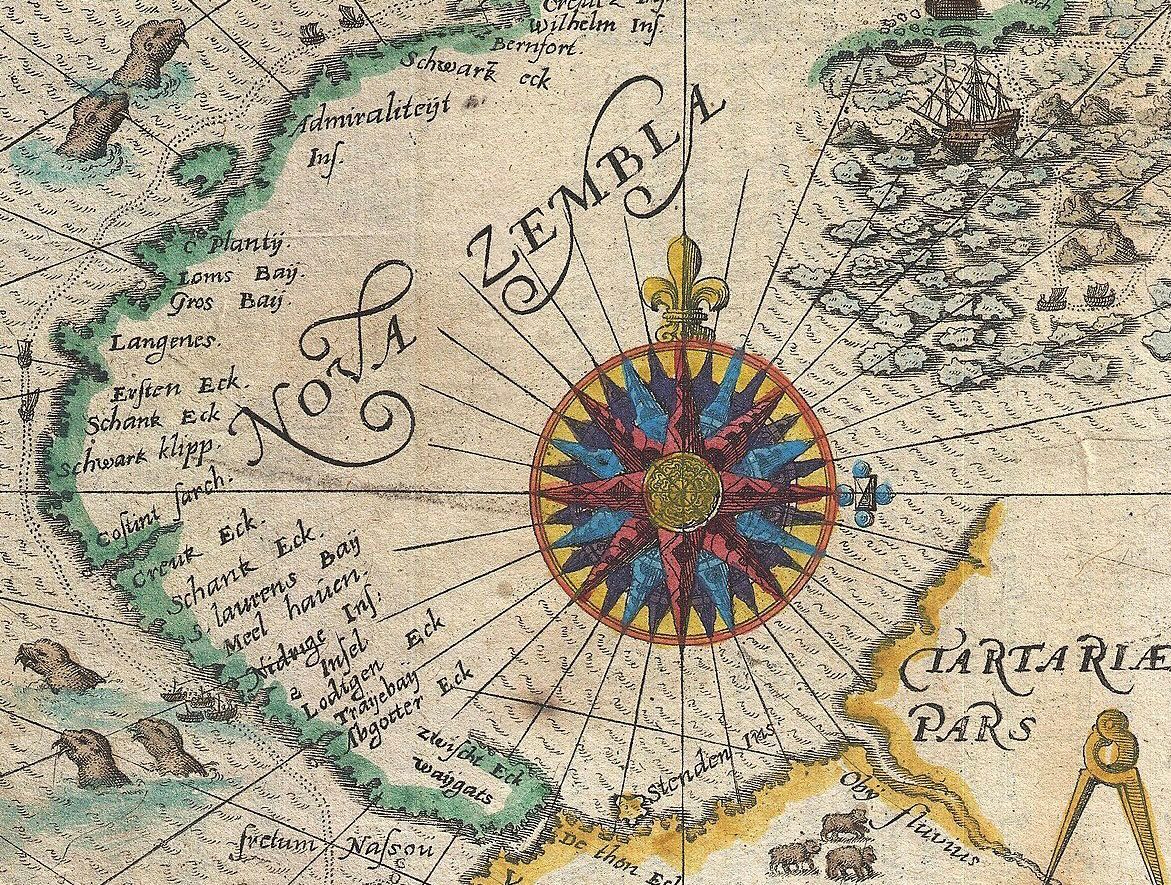 Wilhelm Inſ.
Bernfort.
Schwartz eck
Admiraliteÿt
Inſ.
NOVA ZEMBLA
C Plantÿ.
Loms Baÿ.
Gros Baÿ
Langenes.
Erſten Eck.
Schank Eck
Schwark klipp.
Coſtint ſarch.
Creuk Eck.
Schank Eck.
S. laurens Baÿ
Meel hauen.
Inſ:
2 Inſel
Lodigen Eck
Traÿebaÿ
Abgotter Eck
Zwiſchē Eck
Waÿgats
fretum Naſsou
Stenden Ins
De thon
Obÿ fluuius
TARTARIÆ
PARS